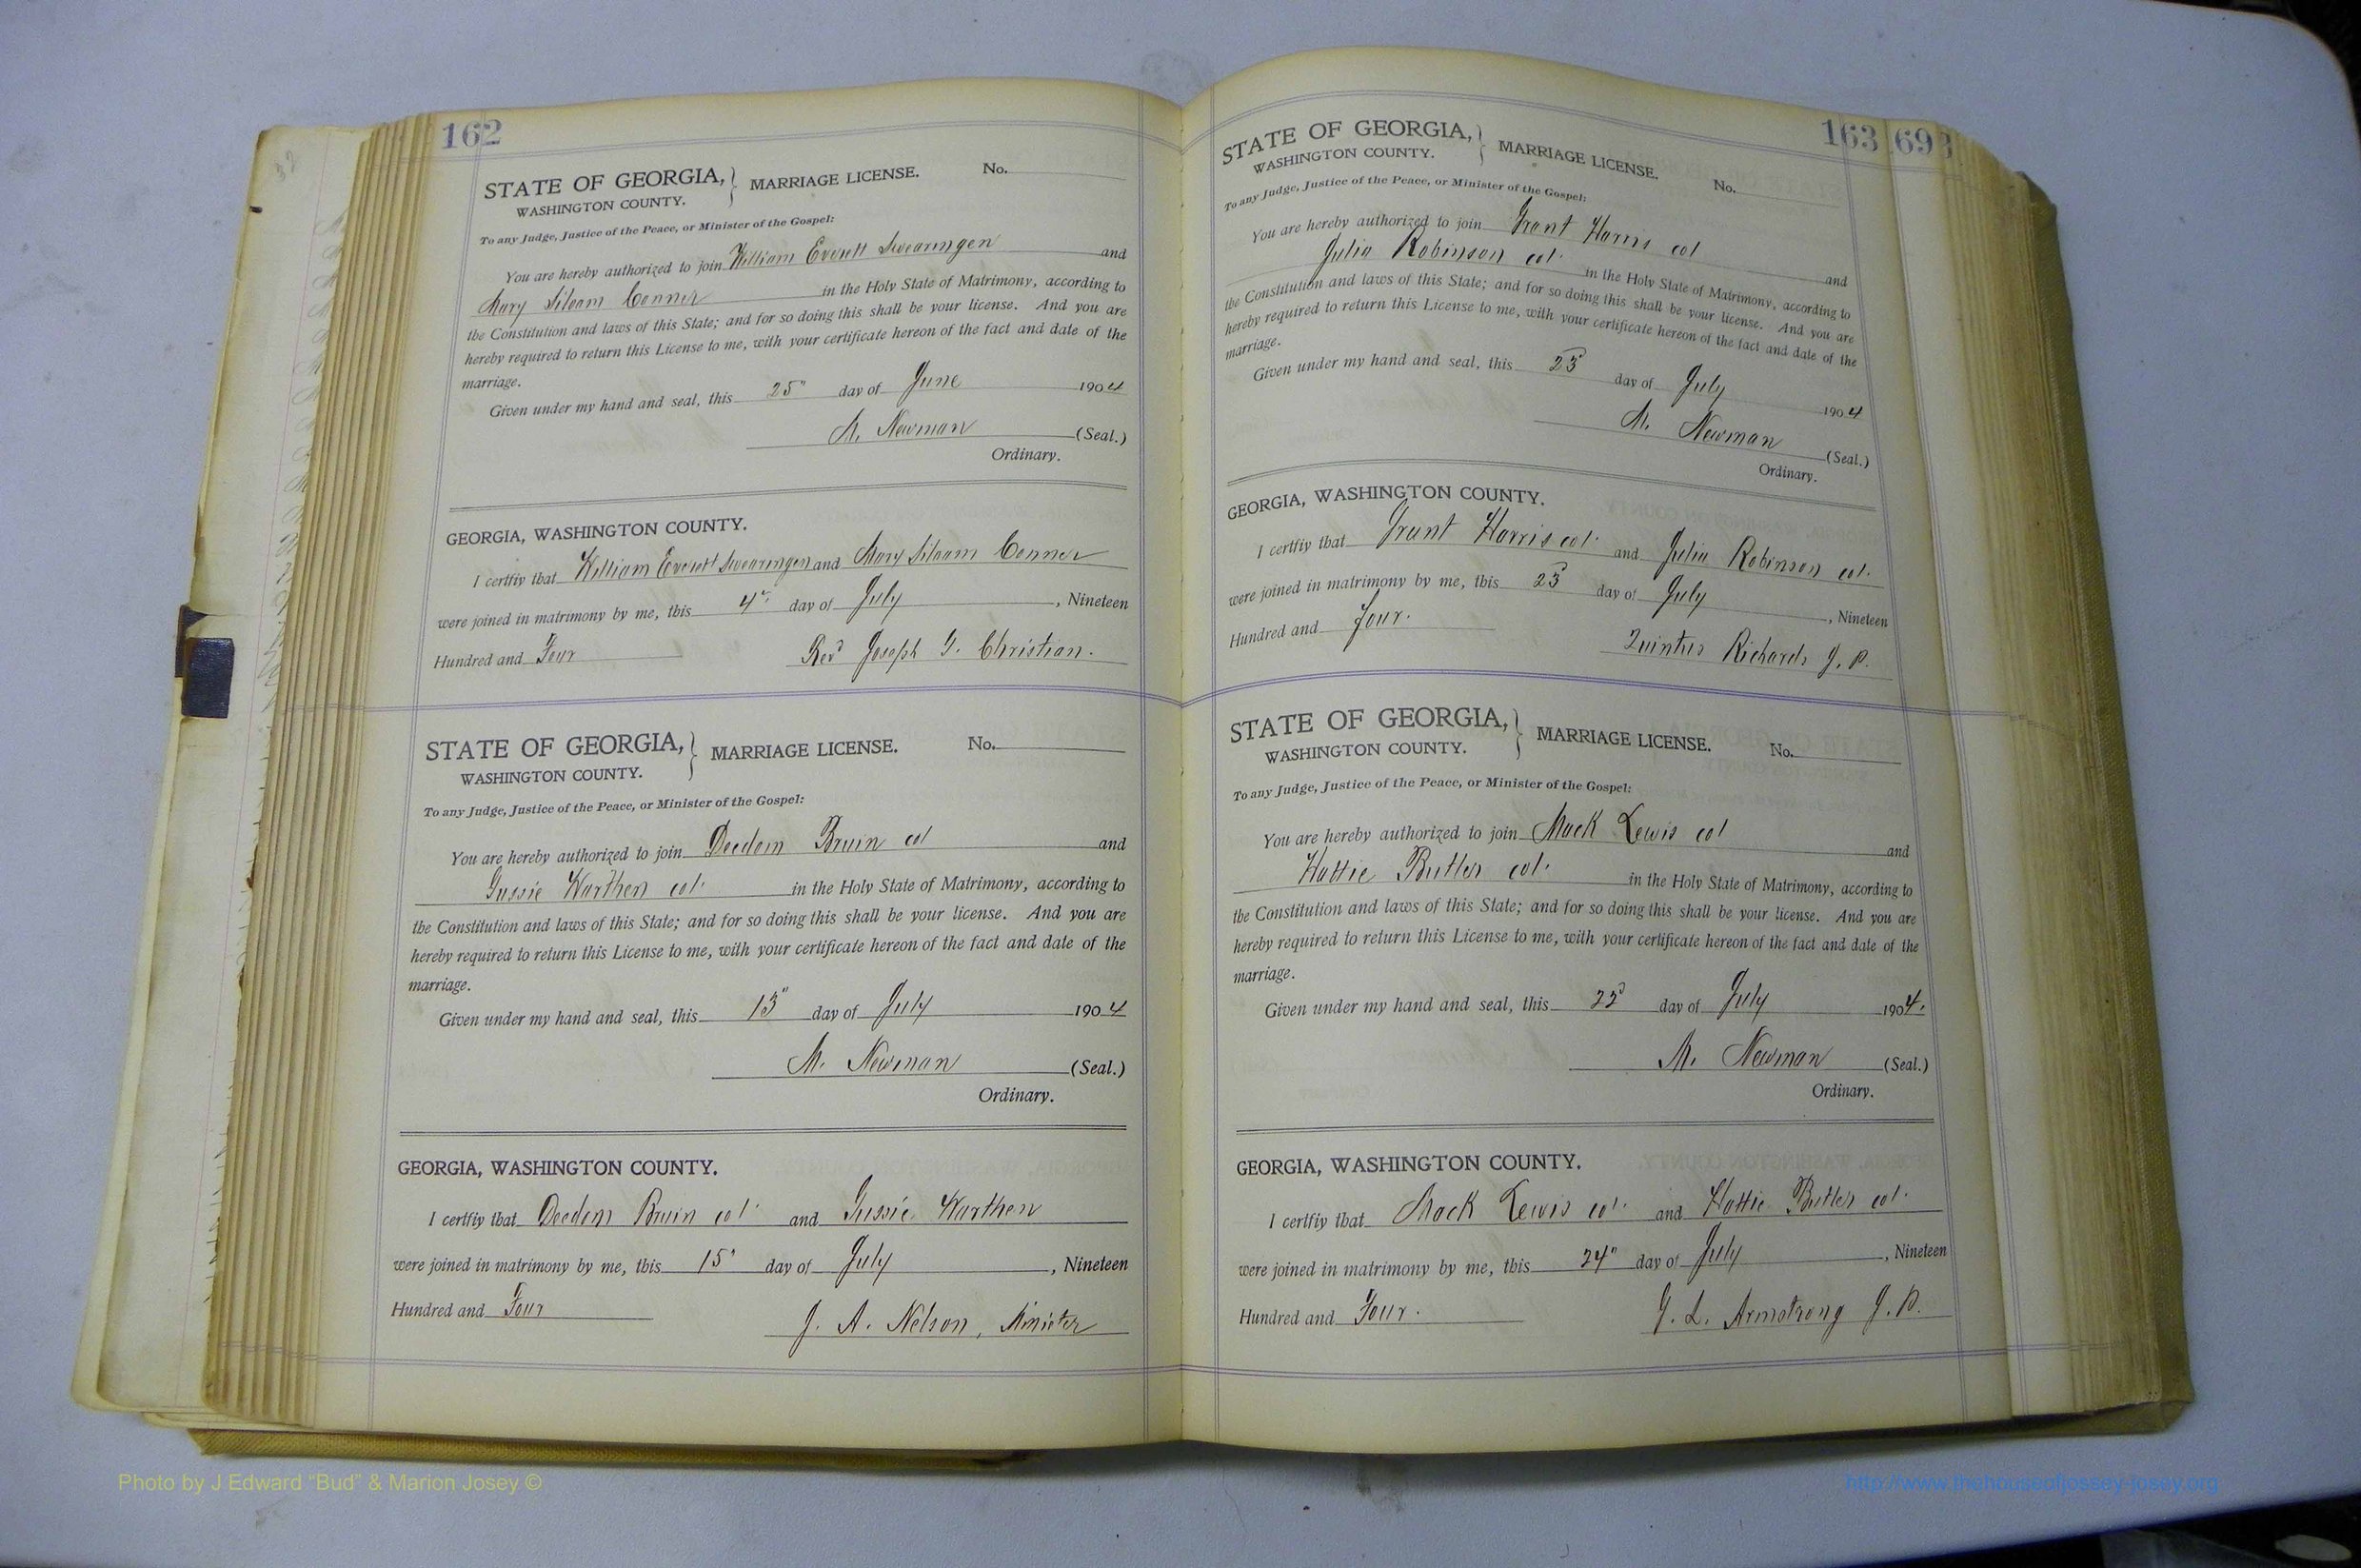 162
STATE OF GEORGIA,
WASHINGTON COUNTY.
MARRIAGE LICENSE. No.
To any Judge, Justice of the Peace, or Minister of the Gospel:
You are hereby authorized to join William Everett Swearingen and
Mary Siloam Conner in the Holy State of Matrimony, according to
the Constitution and laws of this State; and for so doing this shall be your license. And you are
hereby required to return this License to me, with your certificate hereon of the fact and date of the
marriage.
Given under my hand and seal, this 25" day of June 1904
M. Newman (Seal.)
Ordinary.
GEORGIA, WASHINGTON COUNTY.
I certfiy that William Everett Swearingen and Mary Siloam Conner
were joined in matrimony by me, this 4" day of July, Nineteen
Hundred and Four Revd Joseph G. Christian.
STATE OF GEORGIA,
WASHINGTON COUNTY.
MARRIAGE LICENSE. No.
To any Judge, Justice of the Peace, or Minister of the Gospel:
You are hereby authorized to join Deedom Bruin col and
Gussie Warthen col. in the Holy State of Matrimony, according to
the Constitution and laws of this State; and for so doing this shall be your license. And you are
hereby required to return this License to me, with your certificate hereon of the fact and date of the
marriage.
Given under my hand and seal, this 13" day of July 1904
M. Newman (Seal.)
Ordinary.
GEORGIA, WASHINGTON COUNTY.
I certfiy that Deedom Bruin col. and Gussie Warthen
were joined in matrimony by me, this 15" day of July, Nineteen
Hundred and Four J. A. Nelson, Minister
163 693
STATE OF GEORGIA,
WASHINGTON COUNTY.
MARRIAGE LICENSE. No.
To any Judge, Justice of the Peace, or Minister of the Gospel:
You are hereby authorized to join Grant Harris col and
Julia Robinson col. in the Holy State of Matrimony, according to
the Constitution and laws of this State; and for so doing this shall be your license. And you are
hereby required to return this License to me, with your certificate hereon of the fact and date of the
marriage.
Given under my hand and seal, this 23 day of July 1904
M. Newman (Seal.)
Ordinary.
GEORGIA, WASHINGTON COUNTY.
I certfiy that Grant Harris col. and Julia Robinson col.
were joined in matrimony by me, this 23 day of July, Nineteen
Hundred and Four. Richards J. P.
STATE OF GEORGIA,
WASHINGTON COUNTY.
MARRIAGE LICENSE. No.
To any Judge, Justice of the Peace, or Minister of the Gospel:
You are hereby authorized to join Mack Lewis col and
Hattie Butler col. in the Holy State of Matrimony, according to
the Constitution and laws of this State; and for so doing this shall be your license. And you are
hereby required to return this License to me, with your certificate hereon of the fact and date of the
marriage.
Given under my hand and seal, this 22d day of July 1904.
M. Newman (Seal.)
Ordinary.
GEORGIA, WASHINGTON COUNTY.
I certfiy that Mack Lewis col. and Hattie Butler col.
were joined in matrimony by me, this 24" day of July, Nineteen
Hundred and Four. G. L. Armstrong J. P.
Photo by J Edward "Bud" & Marion Josey ©
http://www.thehouseofjossey-josey.org